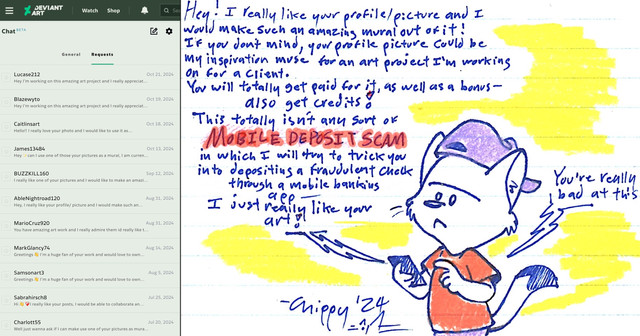 DEVIANT
ART
Watch
Shop
Se
Chat BETA
General
Requests
Lucase212
Oct 22, 2024
Hey I'm working on this amazing art project and I really appreciat...
Blazewyto
Hey I'm working on this amazing art project and I really appreciat...
Caitlinsart
Hello!! I really love your photo and I would like to use it as...
James13484
Oct 13, 2024
BUZZKILL160
Sep 22, 2024
I really like one of your pictures and I would like to make an amazi...
AbleNightroad120
Aug 31, 2024
Hey, I really like your profile/ picture and I would make such an...
MarioCruz920
Aug 31, 2024
You have amazing art work and I really admire them id really like t...
MarkGlancy74
Aug 14, 2024
Greetings 👋 I'm a huge fan of your work and would love to own...
Samsonart3
Aug 5, 2024
Greetings 👋 I'm a huge fan of your work and would love to own...
Sabrahirsch8
Jul 25, 2024
I really like your posts, I would be able to collaborate wi...
Charlott55
Jul 20, 2024
Well just wanna ask if I can make use one of your pictures as mura...
Hey! I really like your profile/picture and I
would make such an amazing mural out of it!
If you dont mind, your profile picture could be
my inspiration muse for an art project I'm working
on for a client.
You will totally get paid for it, as well as a bonus—
also get credits!
This totally isn't any sort of
MOBILE DEPOSIT SCAM
in which I will try to trick you
into depositing a fraudulent check
through a mobile banking
app —
I just really like your
art!
You're really
bad at this
-Chippy '24